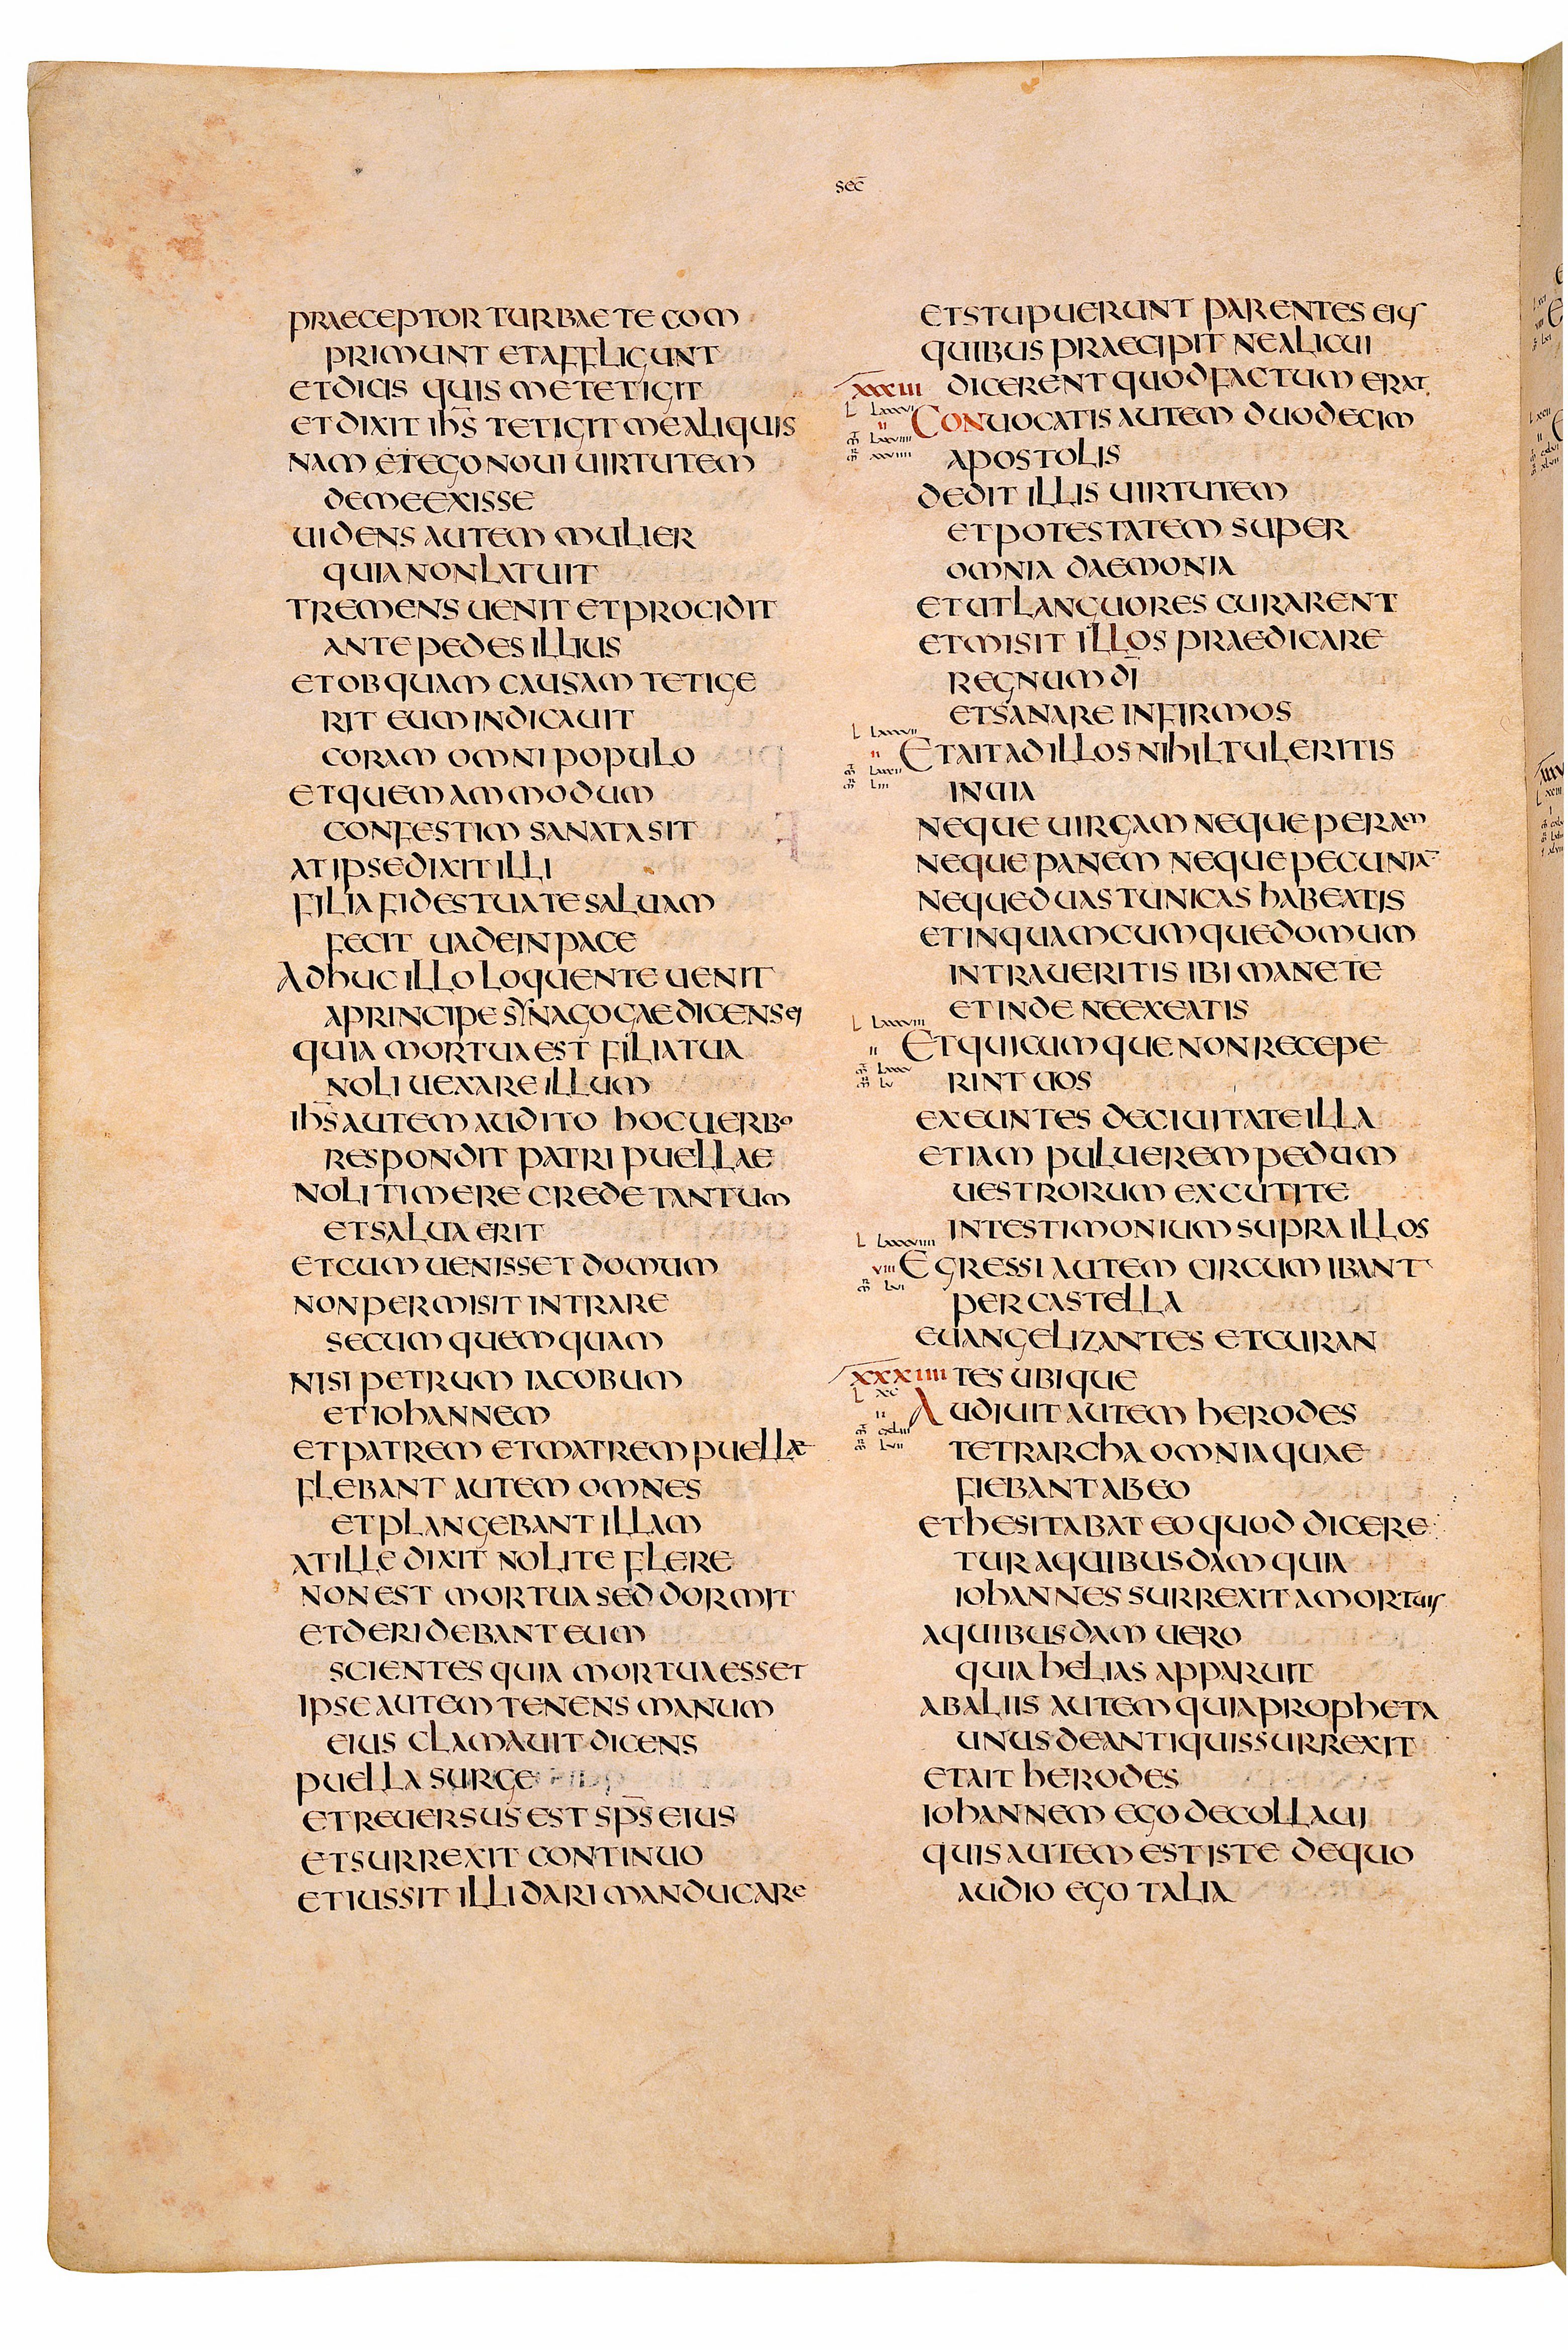 sec̄
PRAECEPTOR TURBAE TE COM
PRIMUNT ET AFFLIGUNT
ET DICIS QUIS ME TETIGIT
ET DIXIT IH̅S TETIGIT ME ALIQUIS
NAM ET EGO NOUI UIRTUTEM
DE ME EXISSE
UIDENS AUTEM MULIER
QUIA NON LATUIT
TREMENS UENIT ET PROCIDIT
ANTE PEDES ILLIUS
ET OB QUAM CAUSAM TETIGE
RIT EUM INDICAUIT
CORAM OMNI POPULO
ET QUEMAMMODUM
CONFESTIM SANATA SIT
AT IPSE DIXIT ILLI
FILIA FIDES TUA TE SALUAM
FECIT UADE IN PACE
ADHUC ILLO LOQUENTE UENIT
A PRINCIPE SYNAGOGAE DICENS EI
QUIA MORTUA EST FILIA TUA
NOLI UEXARE ILLUM
IH̅S AUTEM AUDITO HOC UERBO
RESPONDIT PATRI PUELLAE
NOLI TIMERE CREDE TANTUM
ET SALUA ERIT
ET CUM UENISSET DOMUM
NON PERMISIT INTRARE
SECUM QUEMQUAM
NISI PETRUM IACOBUM
ET IOHANNEM
ET PATREM ET MATREM PUELLAE
FLEBANT AUTEM OMNES
ET PLANGEBANT ILLAM
AT ILLE DIXIT NOLITE FLERE
NON EST MORTUA SED DORMIT
ET DERIDEBANT EUM
SCIENTES QUIA MORTUA ESSET
IPSE AUTEM TENENS MANUM
EIUS CLAMAUIT DICENS
PUELLA SURGE
ET REUERSUS EST SP̅S EIUS
ET SURREXIT CONTINUO
ET IUSSIT ILLI DARI MANDUCARE
ET STUPUERUNT PARENTES EIUS
QUIBUS PRAECIPIT NE ALICUI
XXXIII DICERENT QUOD FACTUM ERAT
L LXXXVI
II CONUOCATIS AUTEM DUODECIM
APOSTOLIS
DEDIT ILLIS UIRTUTEM
ET POTESTATEM SUPER
OMNIA DAEMONIA
ET UT LANGUORES CURARENT
ET MISIT ILLOS PRAEDICARE
REGNUM DI̅
ET SANARE INFIRMOS
L LXXXVII
II ET AIT AD ILLOS NIHIL TULERITIS
IN UIA
NEQUE UIRGAM NEQUE PERAM
NEQUE PANEM NEQUE PECUNIA̅
NEQUE DUAS TUNICAS HABEATIS
ET IN QUAMCUMQUE DOMUM
INTRAUERITIS IBI MANETE
ET INDE NE EXEATIS
L LXXXVIII
II ET QUICUMQUE NON RECEPE
RINT UOS
EXEUNTES DE CIUITATE ILLA
ETIAM PULUEREM PEDUM
UESTRORUM EXCUTITE
IN TESTIMONIUM SUPRA ILLOS
L LXXXVIIII
VIII EGRESSI AUTEM CIRCUMIBANT
PER CASTELLA
EUANGELIZANTES ET CURAN
XXXIIII TES UBIQUE
L XC
II AUDIUIT AUTEM HERODES
TETRARCHA OMNIA QUAE
FIEBANT AB EO
ET HESITABAT EO QUOD DICERE
TUR A QUIBUSDAM QUIA
IOHANNES SURREXIT A MORTUIS
A QUIBUSDAM UERO
QUIA HELIAS APPARUIT
AB ALIIS AUTEM QUIA PROPHETA
UNUS DE ANTIQUIS SURREXIT
ET AIT HERODES
IOHANNEM EGO DECOLLAUI
QUIS AUTEM EST ISTE DE QUO
AUDIO EGO TALIA